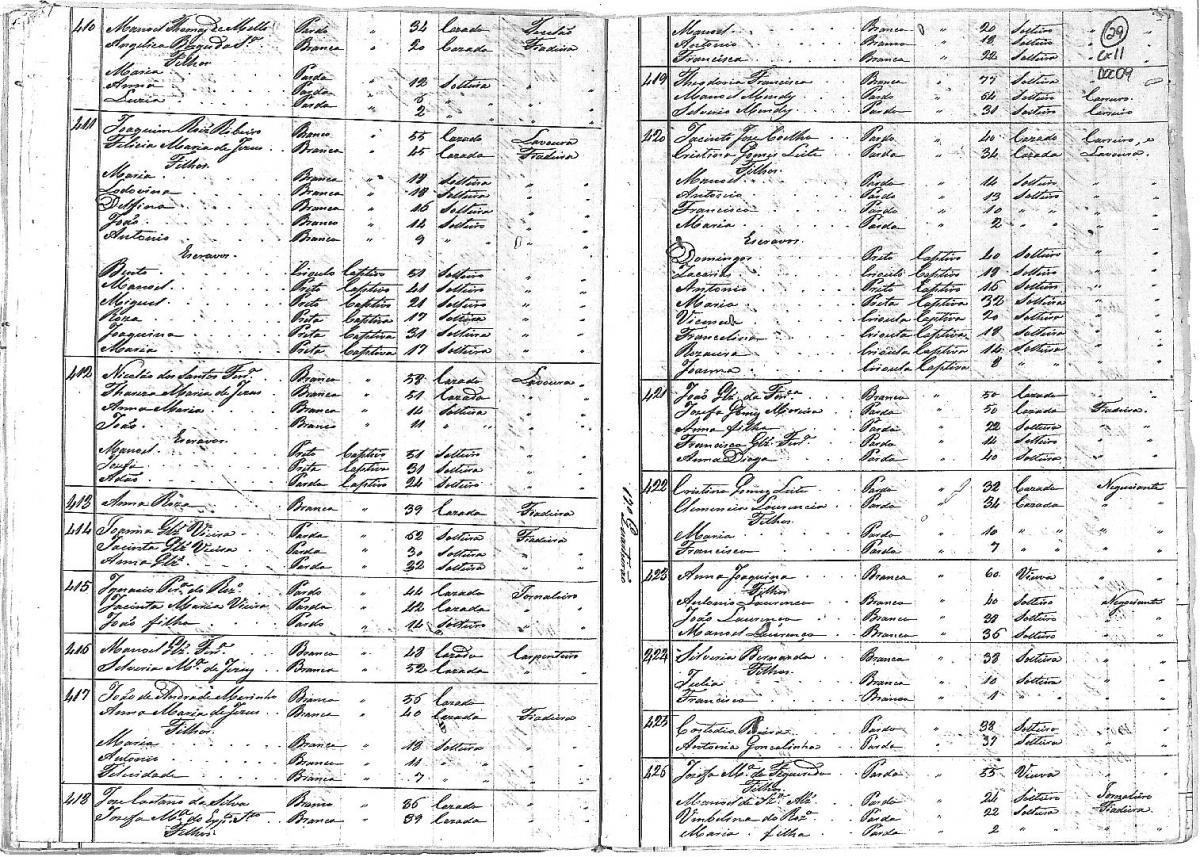 410 Manoel Thomas de Mello Pardo 34 Cazado
Angelica Branca 20 Cazada Fiadeira
Filhos
Maria Parda 12 Solteira "
Anna Parda "
Luzia Parda " 2 " " "
411 Joaquim Roiz Ribeiro Branco " 55 Cazado Lavoura
Felicia Maria de Jezus Branca " 45 Cazada Fiadeira
Filhos
Maria Branca " 18 Solteira "
Branca " 18 Solteira "
Delfina Branca " 16 Solteira "
João Branco " 14 Solteiro "
Antonio Branco " 9 " "
Escravos
Bento Crioulo Captivo 51 Solteiro "
Manoel Preto Captivo 41 Solteiro "
Miguel Preto Captivo 21 Solteiro "
Roza Preta Captiva 17 Solteira "
Joaquina Preta Captiva 31 Solteira "
Maria Preta Captiva 17 Solteira "
412 Nicoláo dos Santos Branco " 58 Cazado Lavoura
Thereza Maria de Jezus Branca " 51 Cazada
Anna Maria Branca " 14 Solteira "
João Branco " 11 " "
Escravos
Manoel Preto Captivo 51 Solteiro "
Preto Captivo 31 Solteiro "
Adão Pardo Captivo 24 Solteiro "
413 Anna Roza Branca " 39 Cazada Fiadeira
414 Joanna Glz Vieira Parda " 52 Solteira Fiadeira
Jacinta Glz Vieira Parda " 30 Solteira "
Anna Glz Parda " 32 Solteira "
415 Ignacio Pardo " 44 Cazado Jornaleiro
Jacinta Maria Vieira Parda " 42 Cazada "
João filho Pardo " 14 Solteiro "
416 Manoel Glz Branco " 48 Cazado Carpenteiro
Silveria Mª de Jezuz Branca " 52 Cazada "
417 João de Andrade Marinho Branco " 55 Cazado
Anna Maria de Jezus Branca " 40 Cazada Fiadeira
Filhos
Maria Branca " 13 Solteira "
Antonio Branco " 11 " "
Felicidade Branca " 7 " "
418 Joze Caetano da Silva Branco " 36 Cazado "
Josefa Mª do Branca " 39 Cazada "
Filhos
Manoel Branco 20 Solteiro "
Antonio Branco " 18 Solteiro "
Francisca Branca " 22 Solteira "
29
Cx 11
419 Theodozia Francisca Branca " 77 Solteira
Manoel Pardo " 54 Solteiro Carreiro
Silverio Pardo " 31 Solteiro Carreiro
420 Jacinto Joze Coelho Pardo " 40 Cazado Carreiro, e
Cristina Gomes Leite Parda " 34 Cazada Lavoura
Filhos
Manoel Pardo " 14 Solteiro "
Antonio Pardo " 13 Solteiro "
Francisco Pardo " 10 " "
Maria Parda " 2 " "
Escravos
Domingos Preto Captivo 40 Solteiro "
Crioulo Captivo 19 Solteiro "
Antonio Preto Captivo 15 Solteiro "
Maria Preta Captiva 32 Solteira "
Crioula Captiva 20 Solteira "
Francelina Crioula Captiva 18 Solteira "
Rozaura Crioula Captiva 14 Solteira "
Joanna Crioula Captiva 8 " "
421 João Glz da Branco " 50 Cazado
Josefa Gomes Moreira Parda " 50 Cazada Fiadeira
Anna filha Parda " 22 Solteira "
Francisco Glz Pardo " 14 Solteiro
Anna Parda " 40 Solteira "
422 Cristino Gomes Leite Pardo " 38 Cazado Negociante
Clemencia Lourencia Parda " 34 Cazada
Filhos
Maria Parda " 10 " "
Francisco Pardo " 7 " "
170
423 Anna Joaquina Branca " 60 Viuva "
Filhos
Antonio Lourenco Branco " 40 Solteiro Negociante
João Lourenco Branco " 38 Solteiro "
Manoel Lourenco Branco " 36 Solteiro "
424 Silveria Bernarda Branca " 38 Solteira "
Filhos
Julia Branca " 10 Solteira "
Francisco Branco " 1 " "
425 Custodio Pardo " 38 Solteiro "
Antonia Goncalinha Parda " 37 Solteira "
426 Josefa Mª de Figueredo Parda " 55 Viuva "
Filhos
Manoel de Pardo " 24 Solteiro Jornaleiro
Parda " 22 Solteira Fiadeira
Maria filha Parda " 2 " "